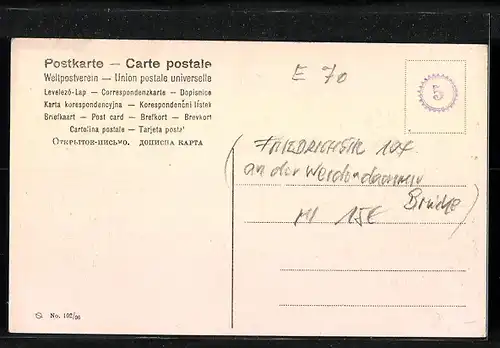 Postkarte — Carte postale
Weltpostverein — Union postale universelle
Levelező-Lap — Correspondenzkarte — Dopisnice
Karta korespondencyjna — Korespondenční lístek
Briefkaart — Post card — Brefkort — Brevkort
Cartolina postale — Tarjeta posta'
Открытое-письмо. дописна карта
E 70
5
(FRIEDRICHSTR 107
an der Weidendammer
Brücke)
MI 15€
S No. 192/06